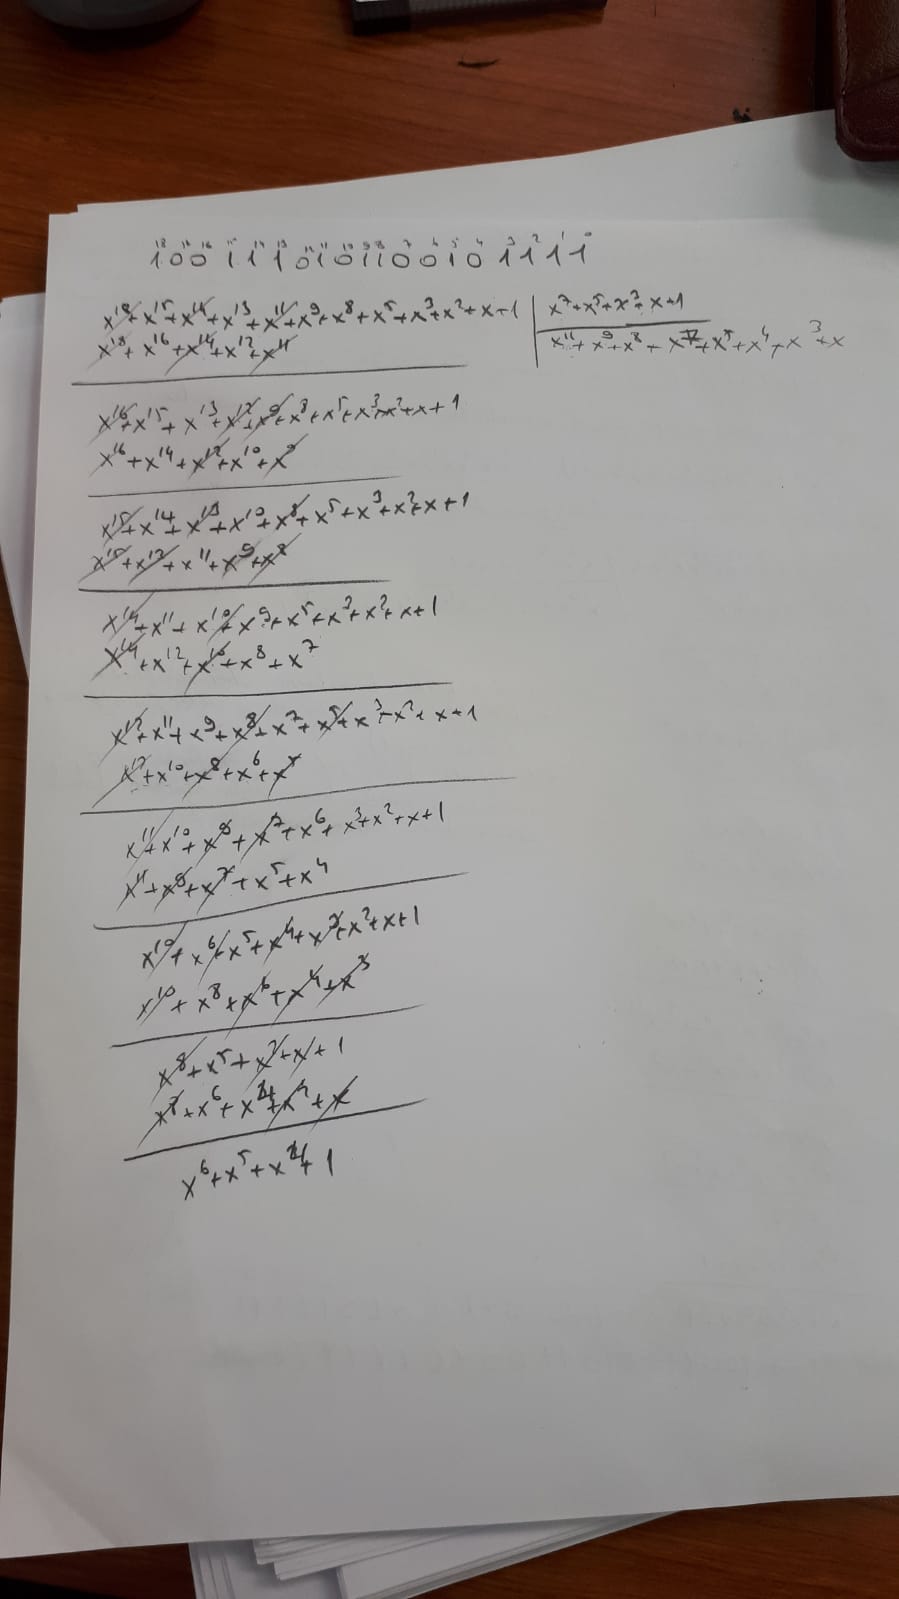 18 17 16 15 14 13 12 11 10 9 8 7 6 5 4 3 2 1 0
1001110101100101111
x^18+x^15+x^14+x^13+x^11+x^9+x^8+x^5+x^3+x^2+x+1 | x^7+x^5+x^3+x+1
x^18+x^16+x^14+x^12+x^11 | x^11+x^9+x^8+x^7+x^5+x^4+x^3+x
x^16+x^15+x^13+x^12+x^9+x^8+x^5+x^3+x^2+x+1
x^16+x^14+x^12+x^10+x^9
x^15+x^14+x^13+x^10+x^8+x^5+x^3+x^2+x+1
x^15+x^13+x^11+x^9+x^8
x^14+x^11+x^10+x^9+x^5+x^3+x^2+x+1
x^14+x^12+x^10+x^8+x^7
x^12+x^11+x^9+x^8+x^7+x^5+x^3+x^2+x+1
x^12+x^10+x^8+x^6+x^5
x^11+x^10+x^9+x^7+x^6+x^3+x^2+x+1
x^11+x^9+x^7+x^5+x^4
x^10+x^6+x^5+x^4+x^3+x^2+x+1
x^10+x^8+x^6+x^4+x^3
x^8+x^5+x^2+x+1
+x^6+x^4+x^2+x
x^6+x^5+x^4+1